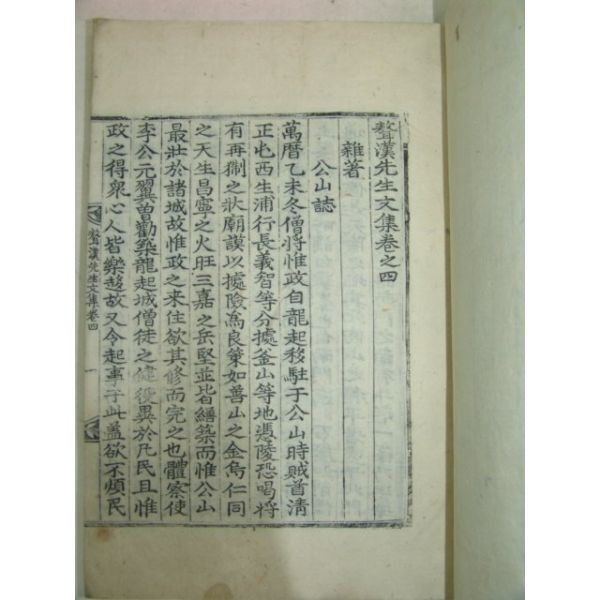 鰲漢先生文集卷之四
雜著
公山誌
萬曆乙未冬僧將惟政自龍起移駐于公山時賊酋清
正屯西生浦行長義智等分據釜山等地憑陵恐喝將
有再猘之狀廟謨以據險爲良策如善山之金烏仁同
之天生昌寧之火旺三嘉之岳堅並皆繕築而惟公山
最壯於諸城故惟政之來住欲其修而完之也體察使
李公元翼曽勸築龍起城僧徒之健役異於凡民且惟
政之得衆心人皆樂趍故又令起事于此盖欲不煩民
鰲漢先生文集卷四
一